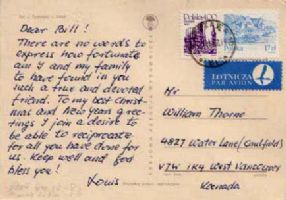 Dear Bill!
There are no words to
express how fortunate
am I and my family
to have found in you
such a true and devoted
friend. To my best Christ
mas and New Years gree-
tings I join a desire to
be able to reciprocate
for all you have done for
us. Keep well and God
bless you!
Louis
Polska
LOTNICZA
PAR AVION
Mr
William Thorne
4827 Water Lane (Caulfields)
V7W 1K4 West Vancouver
Kanada